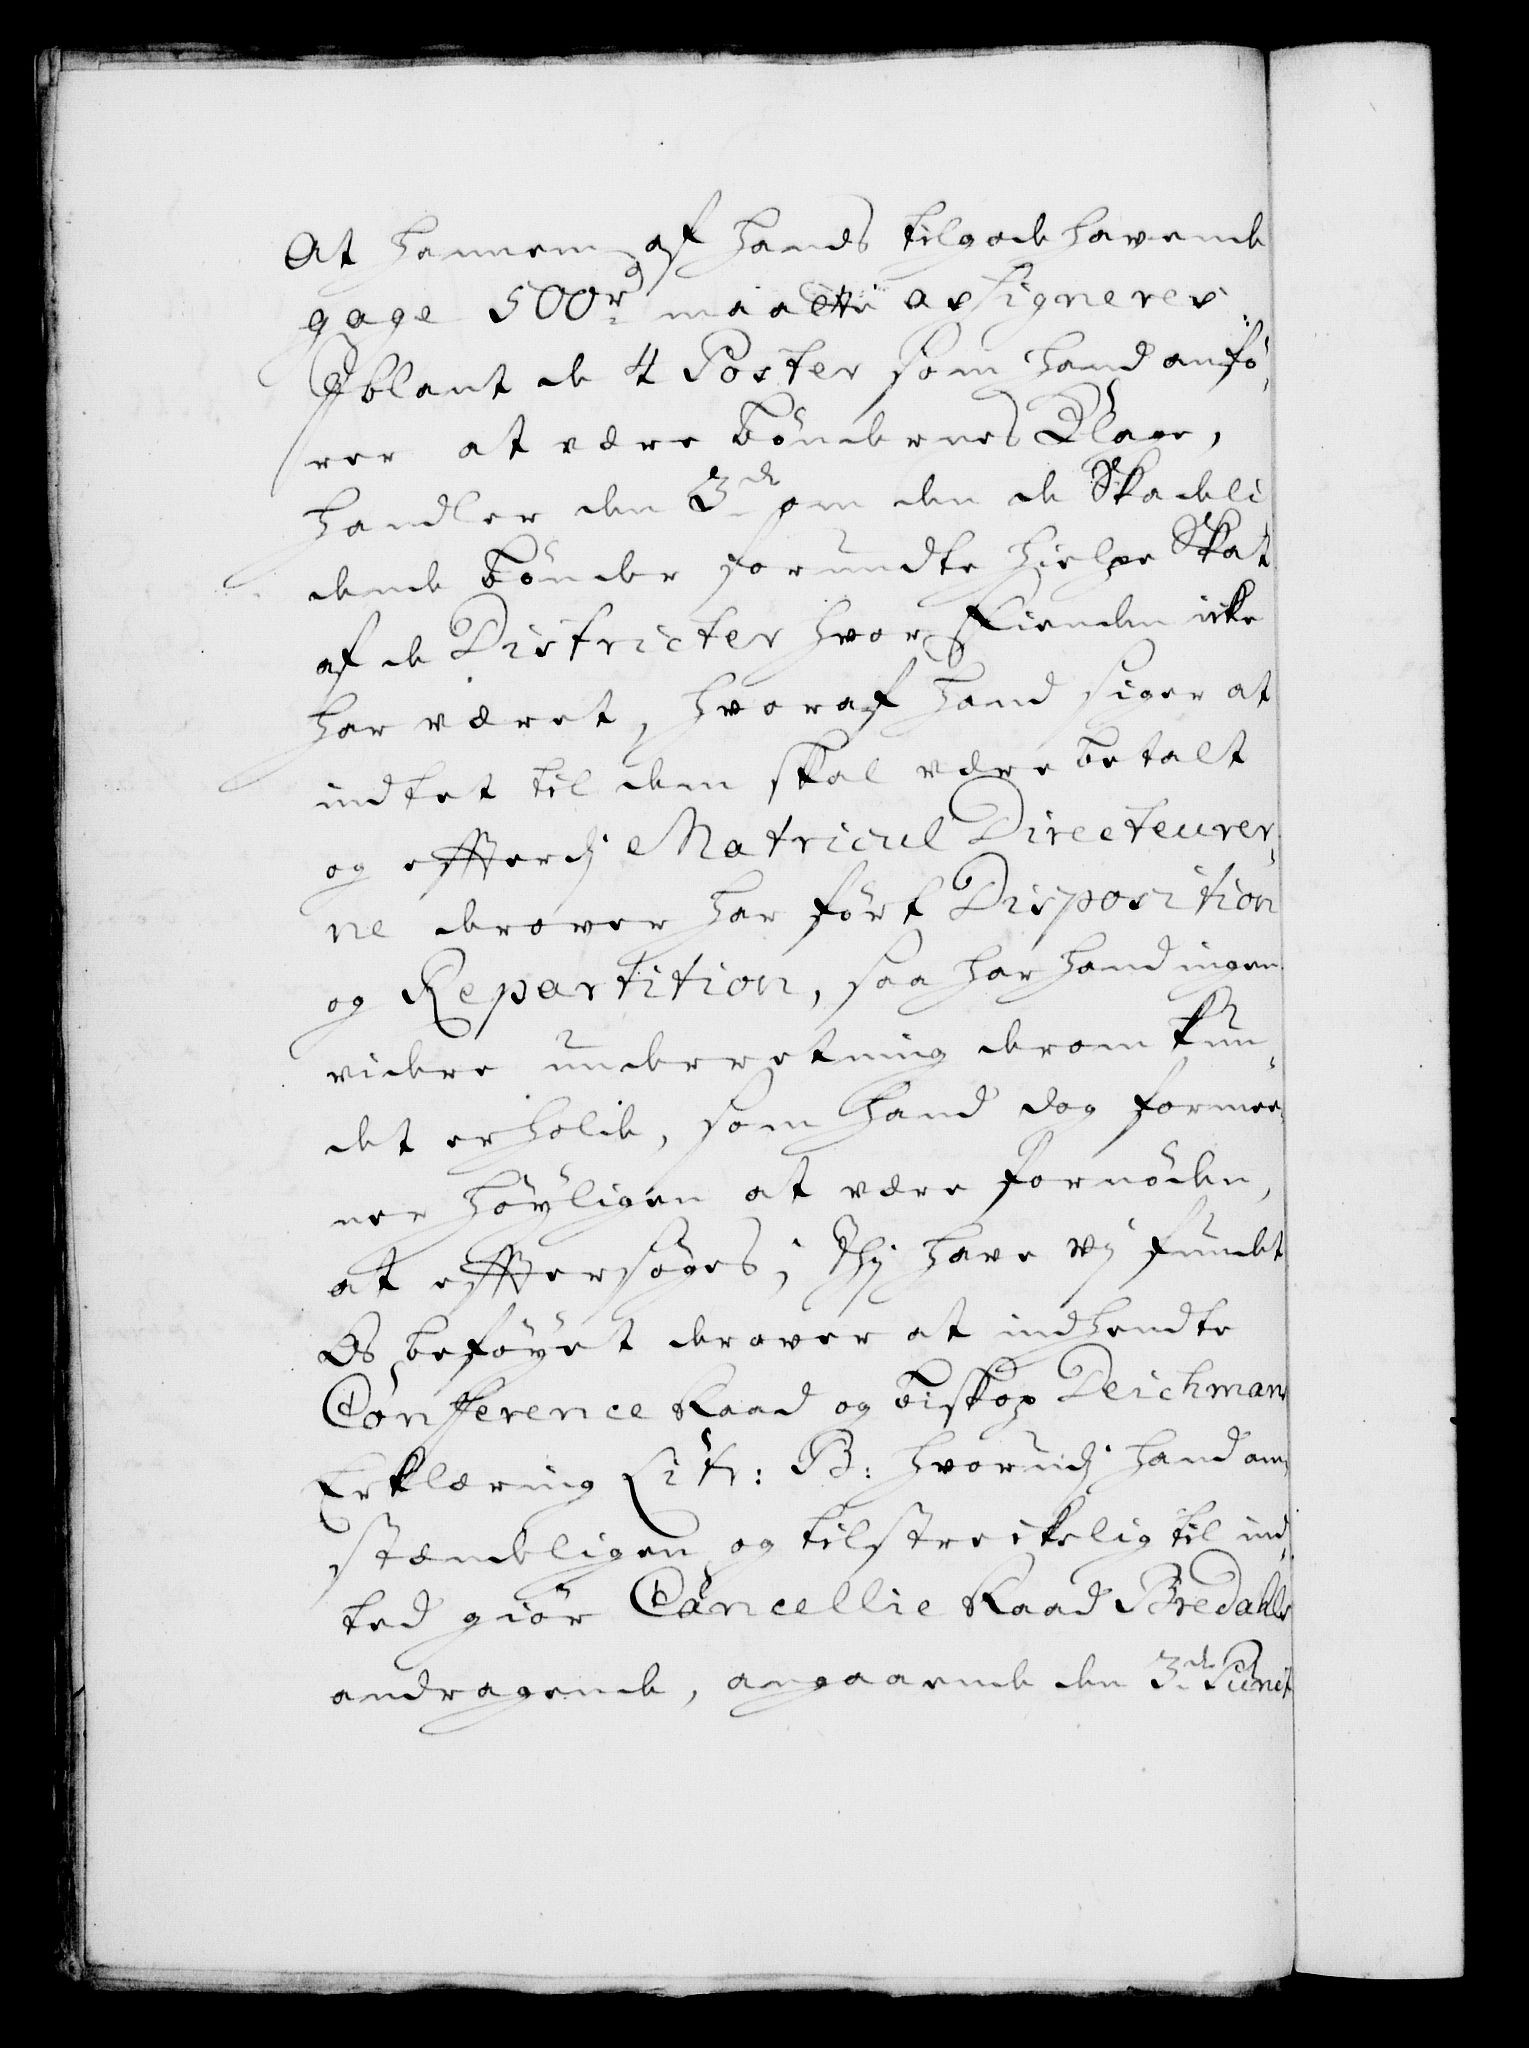 At hannem af hands tilgode havende
gage 500r maatte assigneres:
Iblant de 4 Poster som hand anfö,
rer at være böndernes Klage,
handler den 3de om den de Skadeli
dende bönder forundte hielpe Skat
af de Districter hvor Fienden icke
har været, hvoraf hand siger at
indtet til dem skal være betalt
og efterdj Matricul Directeurer,
ne derover har fört Disposition
og Repartition, saa har hand ingen
videre underretning derom kun,
det erholde, som hand dog formee,
ner höyligen at være fornöden,
at eftersöges; Thj have vj fundet
Os beföyet derover at indhendte
Conference Raad og biskop Deichmans
Erklæring Litr: B: hvorudj hand om,
stændeligen og tilstreckelig til ind,
ted giör Cancellie Raad Bredahls
andragende, angaaende den 3de Punct